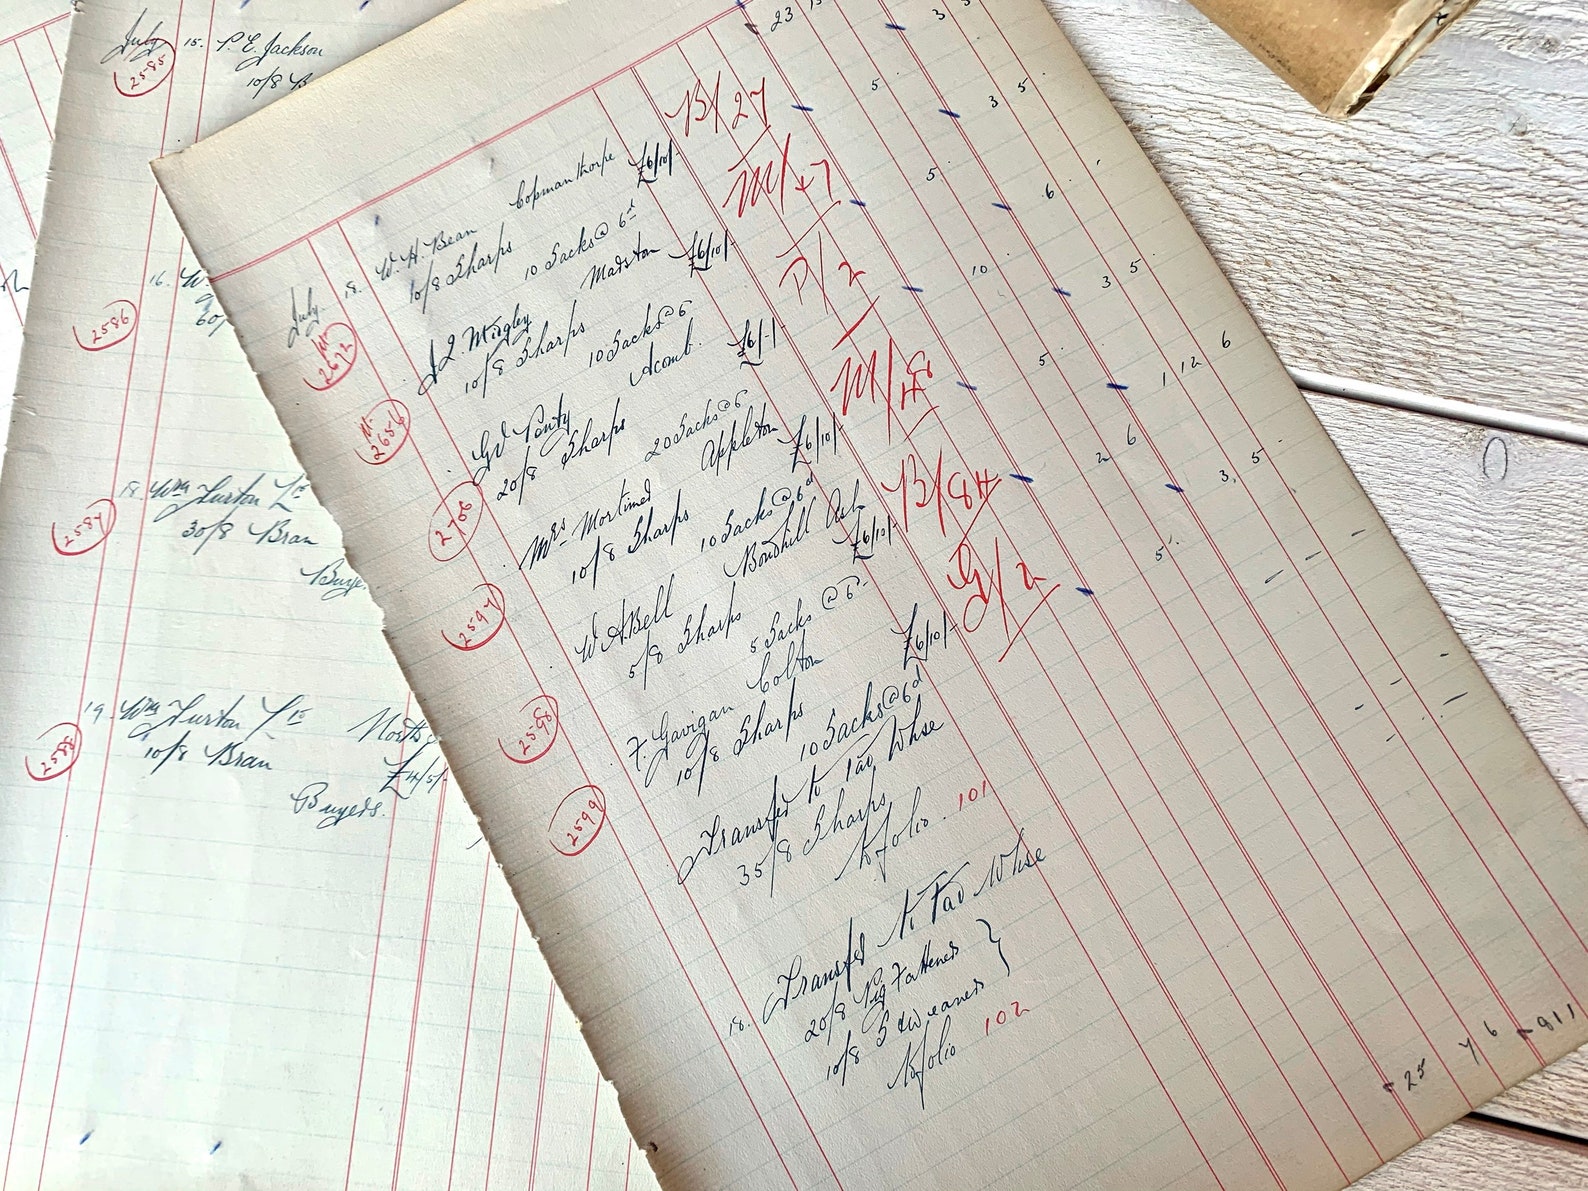 July 15. P. E. Jackson
2585
10/8 B
16. W.
2586
60/
18. Wm Turton Ld
2587
30/8 Bran
Buye
19. Wm Turton Ld
2588
10/8 Bran
£4/5/-
Buyers.
23 15
July. 18. W. H. Bean Copmanthorpe B/27
2672
10/8 Sharps £6/10/- 5 3 5
10 Sacks @ 6d
J. Q. Midgley Marston M/47
2656
10/8 Sharps £6/10/- 5 . 6
10 Sacks @ 6
Gd Penty Acomb. P/2
2706
20/8 Sharps £6/-/- 10 3 5
20 Sacks @ 6
Mrs Mortimer Appleton M/48
2597
10/8 Sharps £6/10/- 5 1 12 6
10 Sacks @ 6d
W. A. Bell Bondhill Ash B/84
2598
5/8 Sharps £6/10/- 2 6 3 5
5 Sacks @ 6
F. Gavigan Colton G/2
2599
10/8 Sharps £6/10/- 5
10 Sacks @ 6d
Transfd to Tad Whse
35/8 Sharps
to folio 101
18. Transfd to Tad Whse
20/8 Pig Fatteners
10/8 S & Weaners
to folio 102
25 7 6 811